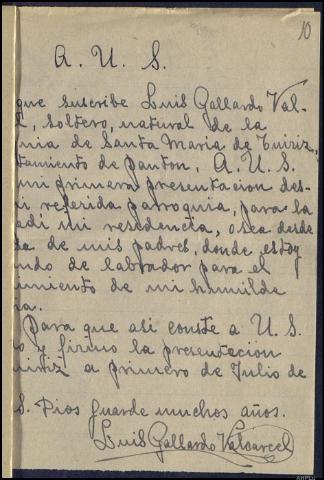 10
A. U. S.
que suscribe Luis Gallardo Val-
l, soltero, natural de la
uia de Santa Maria de Tuiriz,
tamiento de Panton, A. U. S.
mi primera presentacion des-
i referida parroquia, para la
edi mi residencia, o sea desde
sa de mis padres, donde estoy
ndo de labrador para el
imiento de mi humilde
ra.
Para que asi conste a U. S.
o y firmo la presentacion
uiriz a primero de Julio de
S. Dios guarde muchos años.
Luis Gallardo Valcarcel
AHPLU